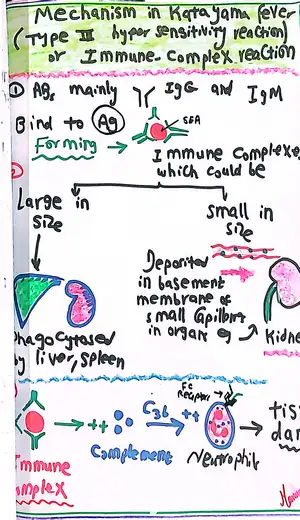 Mechanism in Katayama fever
(Type III hyper sensitivity reaction)
or Immune-complex reaction
① Ags mainly IgG and IgM
Bind to Ag
SEA
Forming
Immune complexes
which could be
Large in
size
small in
size
Deposited
in basement
membrane of
small capillary
in organs eg
Kidne
phagocytosed
by liver, spleen
Immune
omplex
++
Complement
C3b
++
Fc
Receptor
Neutrophil
tis
dam